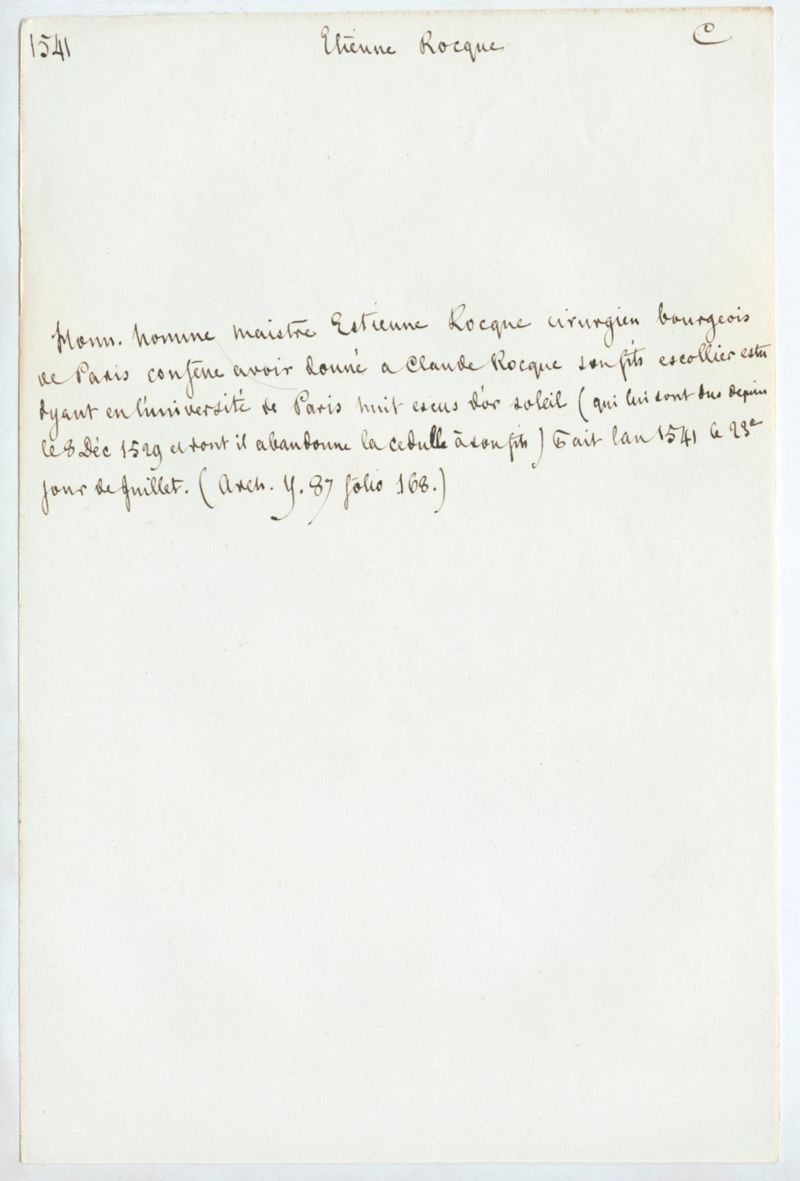 1541 Etienne Rocque C
Honn. homme maistre Estienne Rocque cirurgien bourgeois
de Paris confesse avoir donné a Claude Rocque son fils escollier estu
dyant en l'université de Paris huit escus d'or soleil (qui lui sont dus depuis
le 8 Déc 1529 et dont il abandonne la cedulle à son fils) Fait l'an 1541 le 23e
jour de Juillet. (Arch. Y. 87 folio 168.)